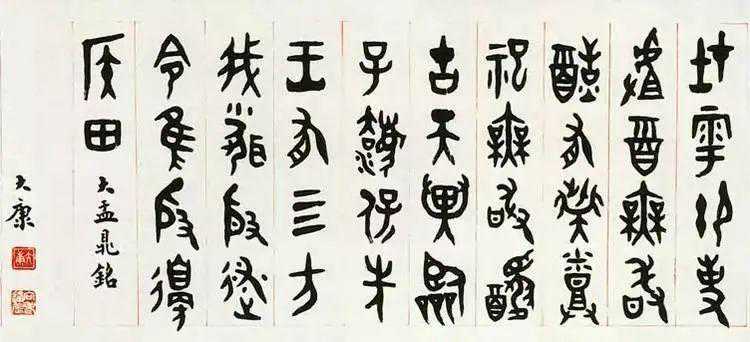 在雩御事
𠭯酉無敢
酖有祡烝
祀無敢醻
古天異臨
子灋保先
王有四方
我聞殷述
令隹殷邊
侯田 大盂鼎銘
大康